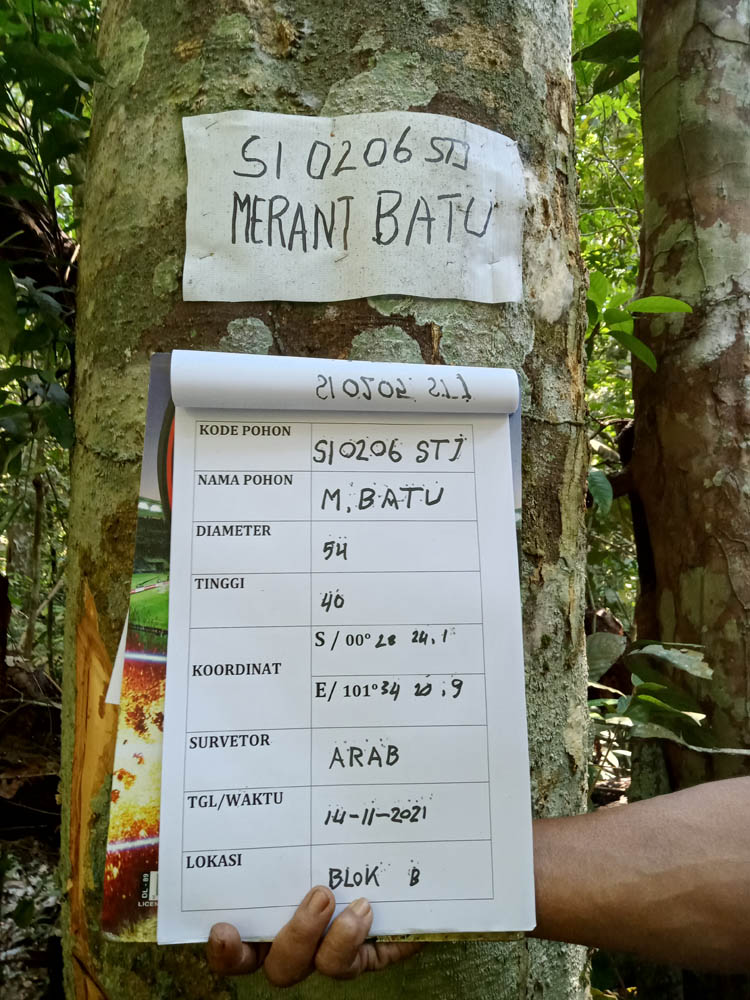 SI 0206 STJ
MERANT BATU
SI 0206 STJ
KODE POHON SI 0206 STJ
NAMA POHON M. BATU
DIAMETER 54
TINGGI 40
KOORDINAT S / 00° 28 24,1
E/ 101° 34 20,9
SURVETOR ARAB
TGL/WAKTU 14-11-2021
LOKASI BLOK B
DL - 89
LICEN